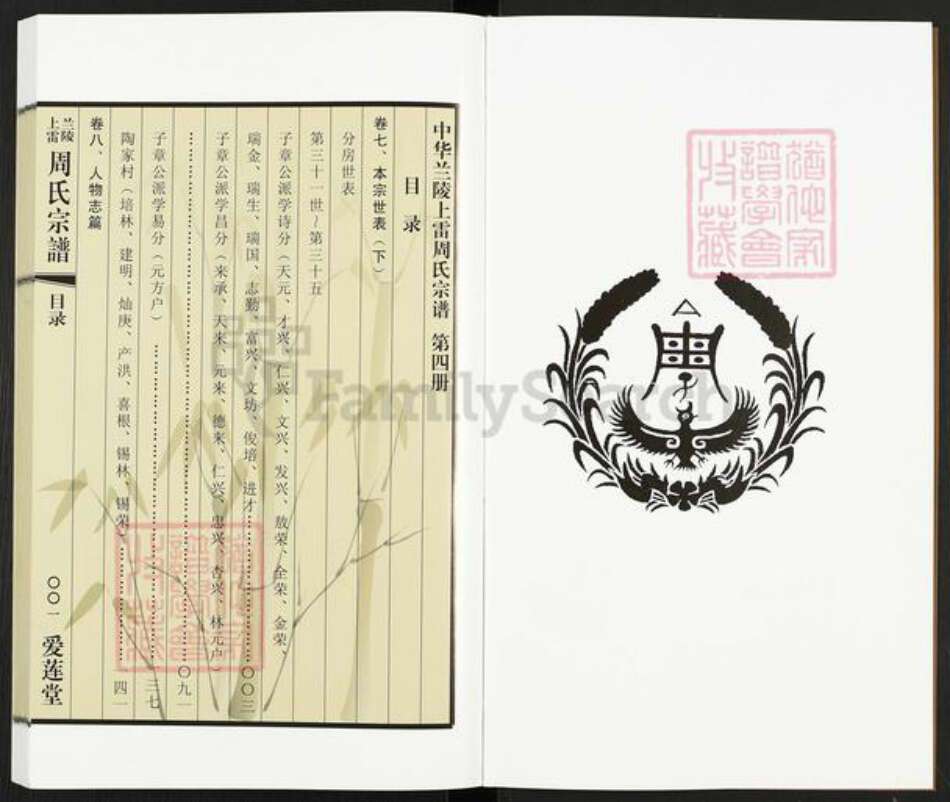 中华兰陵上雷周氏宗谱 第四册
目录
卷七、本宗世表(下)
分房世表
第三十一世~第三十五
子章公派学诗分(天元、才兴、仁兴、文兴、发兴、敖荣、全荣、金荣、
瑞金、瑞生、瑞国、志勤、富兴、文坊、俊培、进才……〇〇三
子章公派学昌分(来承、天来、元来、德来、仁兴、忠兴、杏兴、林元户)
……〇九一
子章公派学易分(元方户)……三七
陶家村(培林、建明、灿庚、产洪、喜根、锡林、锡荣)……四一
卷八、人物志篇
兰陵上雷 周氏宗譜 目录 〇〇一 爱莲堂
猶他家譜學會收藏
FamilySearch